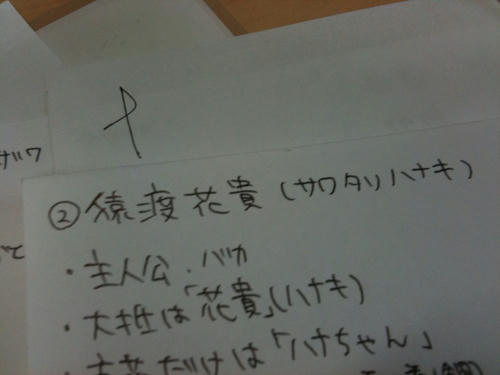 ②猿渡花貴(サワタリハナキ)
・主人公.バカ
・大抵は「花貴」(ハナキ)
だけは「ハナちゃん」